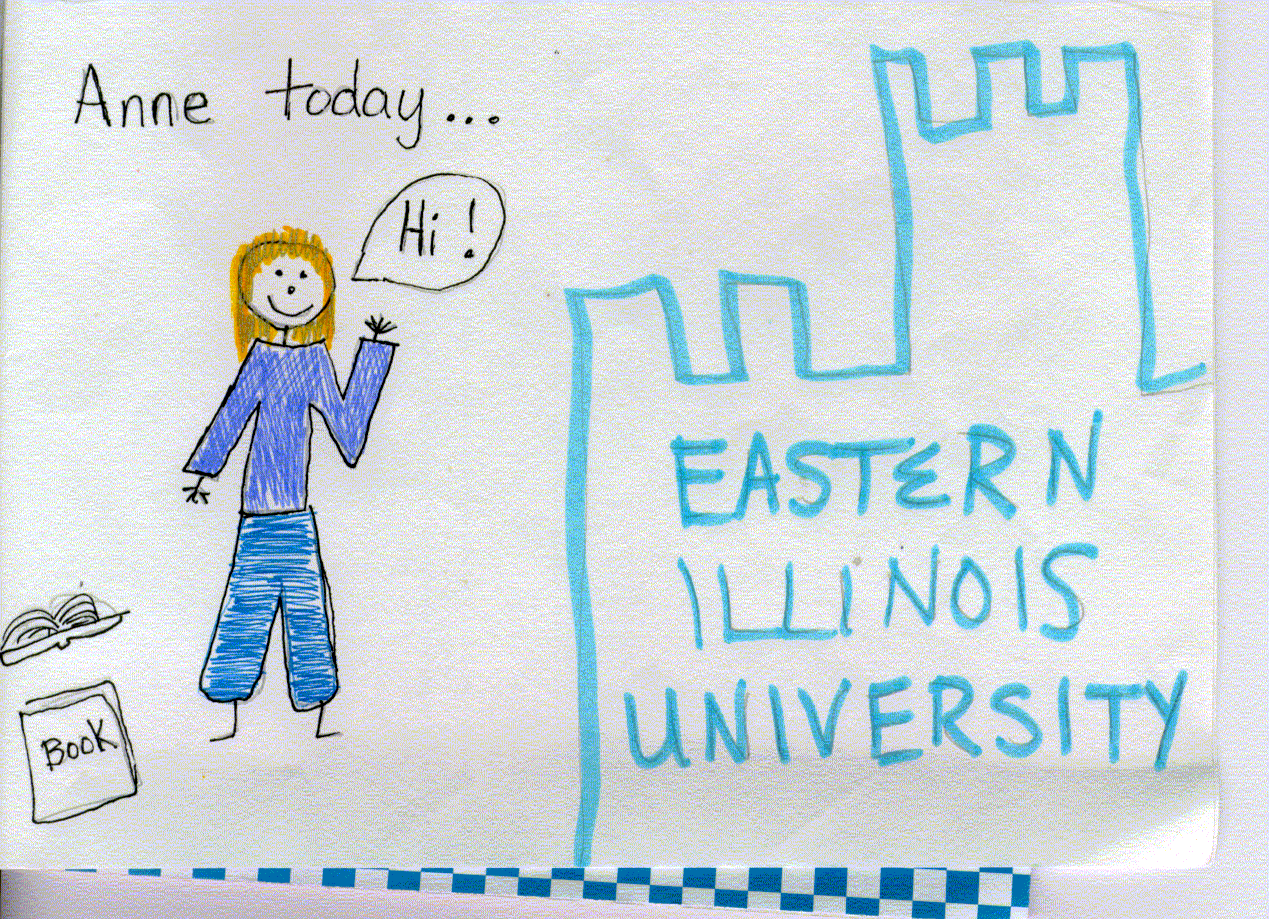 Anne today...
Hi!
BOOK
EASTERN
ILLINOIS
UNIVERSITY